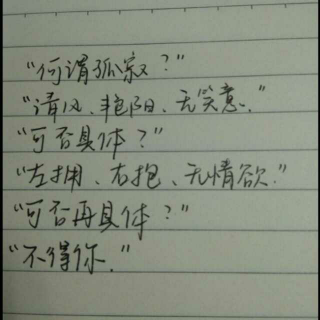 "何谓孤寂？"
"清风、艳阳、无笑意."
"可否具体？"
"左拥、右抱、无情欲."
"可否再具体？"
"不得你."